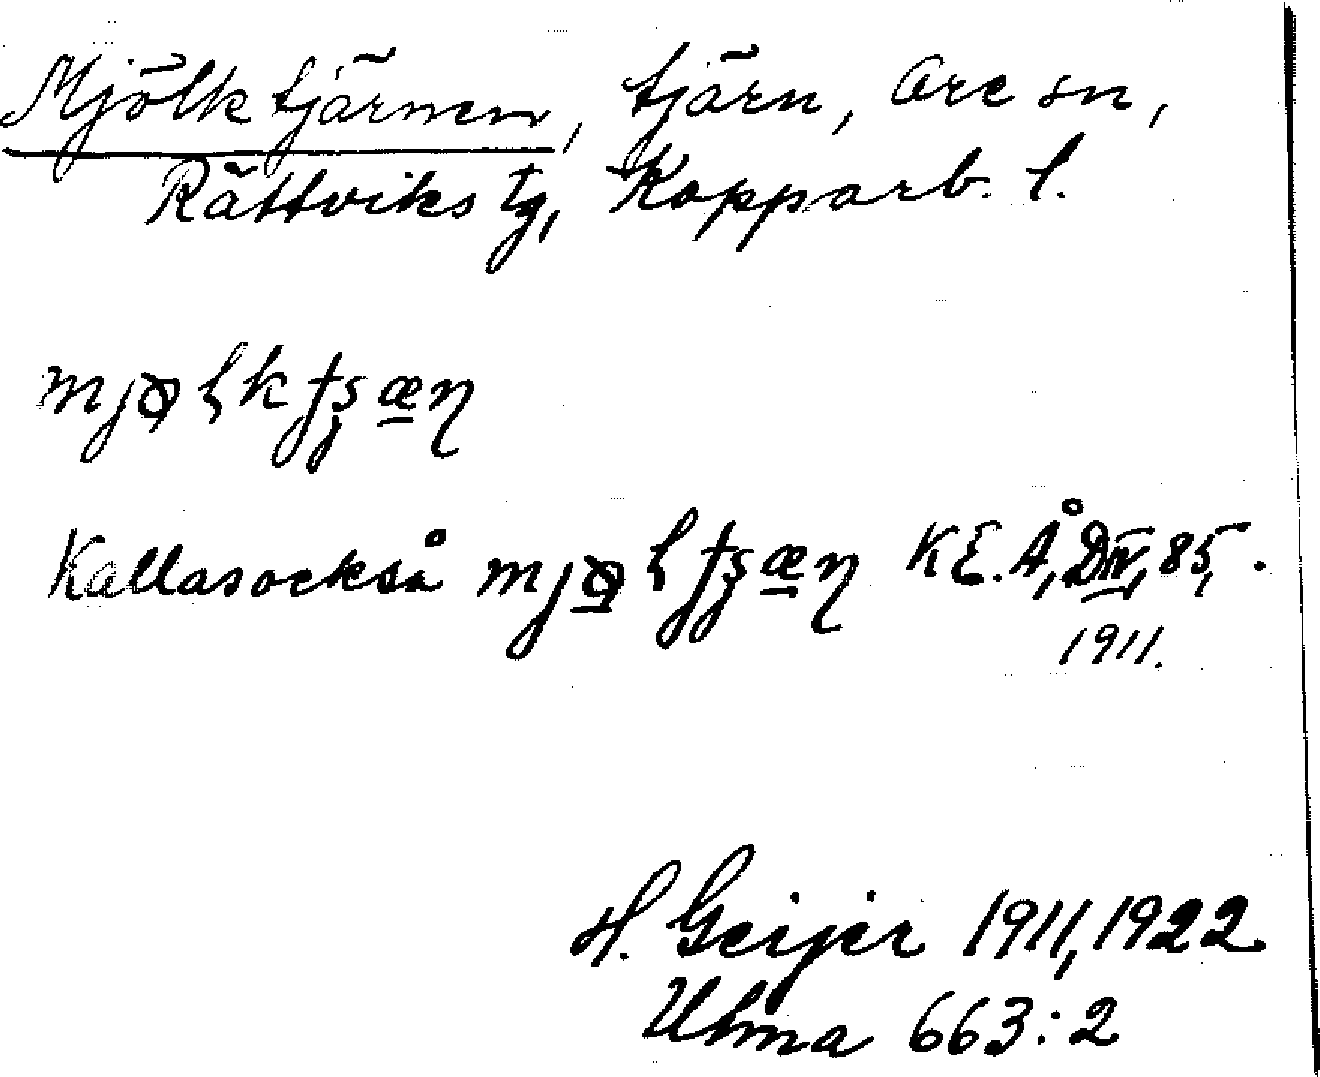 Mjölktjärnen, tjärn, Ore sn,
Rättviks tg, Kopparb. l.
Kallas också KE. Å, DIV, 85,.
1911.
H. Geijer 1911, 1922
Ulma 663:2